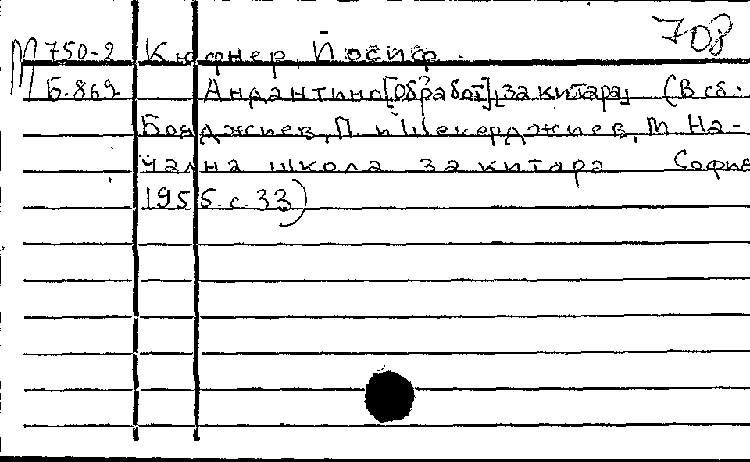 708
М 750-2 Кюфнер, Йосиф.
Б. 869 Андантино [обработ] за китара (В сб.
Бояджиев, П. и Шекерджиев, М. На-
чална школа за китара София
1955. с. 33)